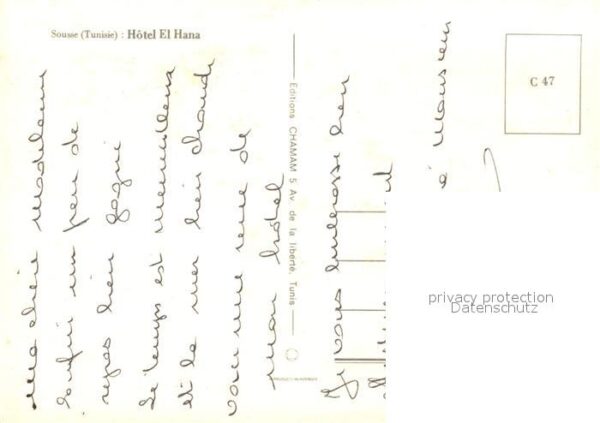 Sousse (Tunisie) : Hôtel El Hana
C 47
Editions CHAMAM 5 Av. de la liberté, Tunis
ma chère Madeleine
enfin un peu de
repos bien gagné
Le temps est merveilleux
et la mer bien chaude
voici une vue de
mon hôtel
Je vous embrasse bien
à Monsieur
privacy protection
Datenschutz